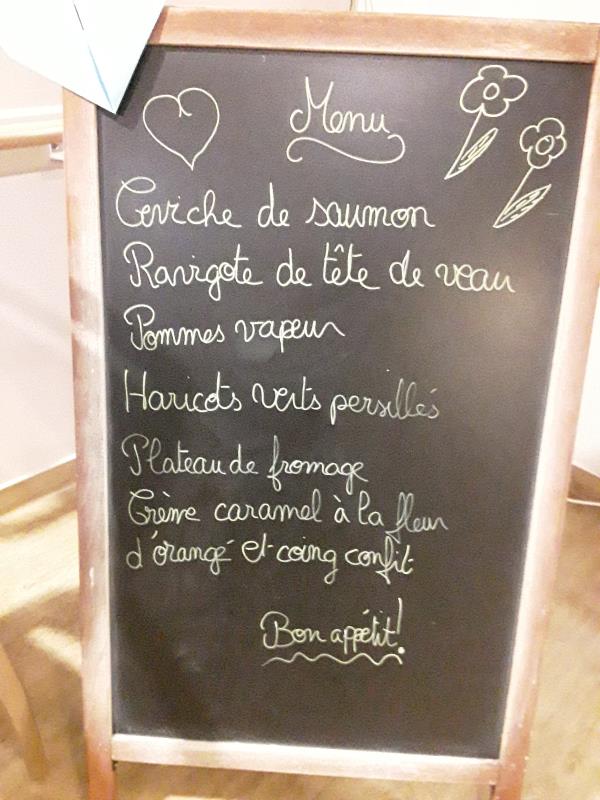 Menu
Ceviche de saumon
Ravigote de tête de veau
Pommes vapeur
Haricots verts persillés
Plateau de fromage
Crème caramel à la fleur
d'orangé et coing confit
Bon appétit!